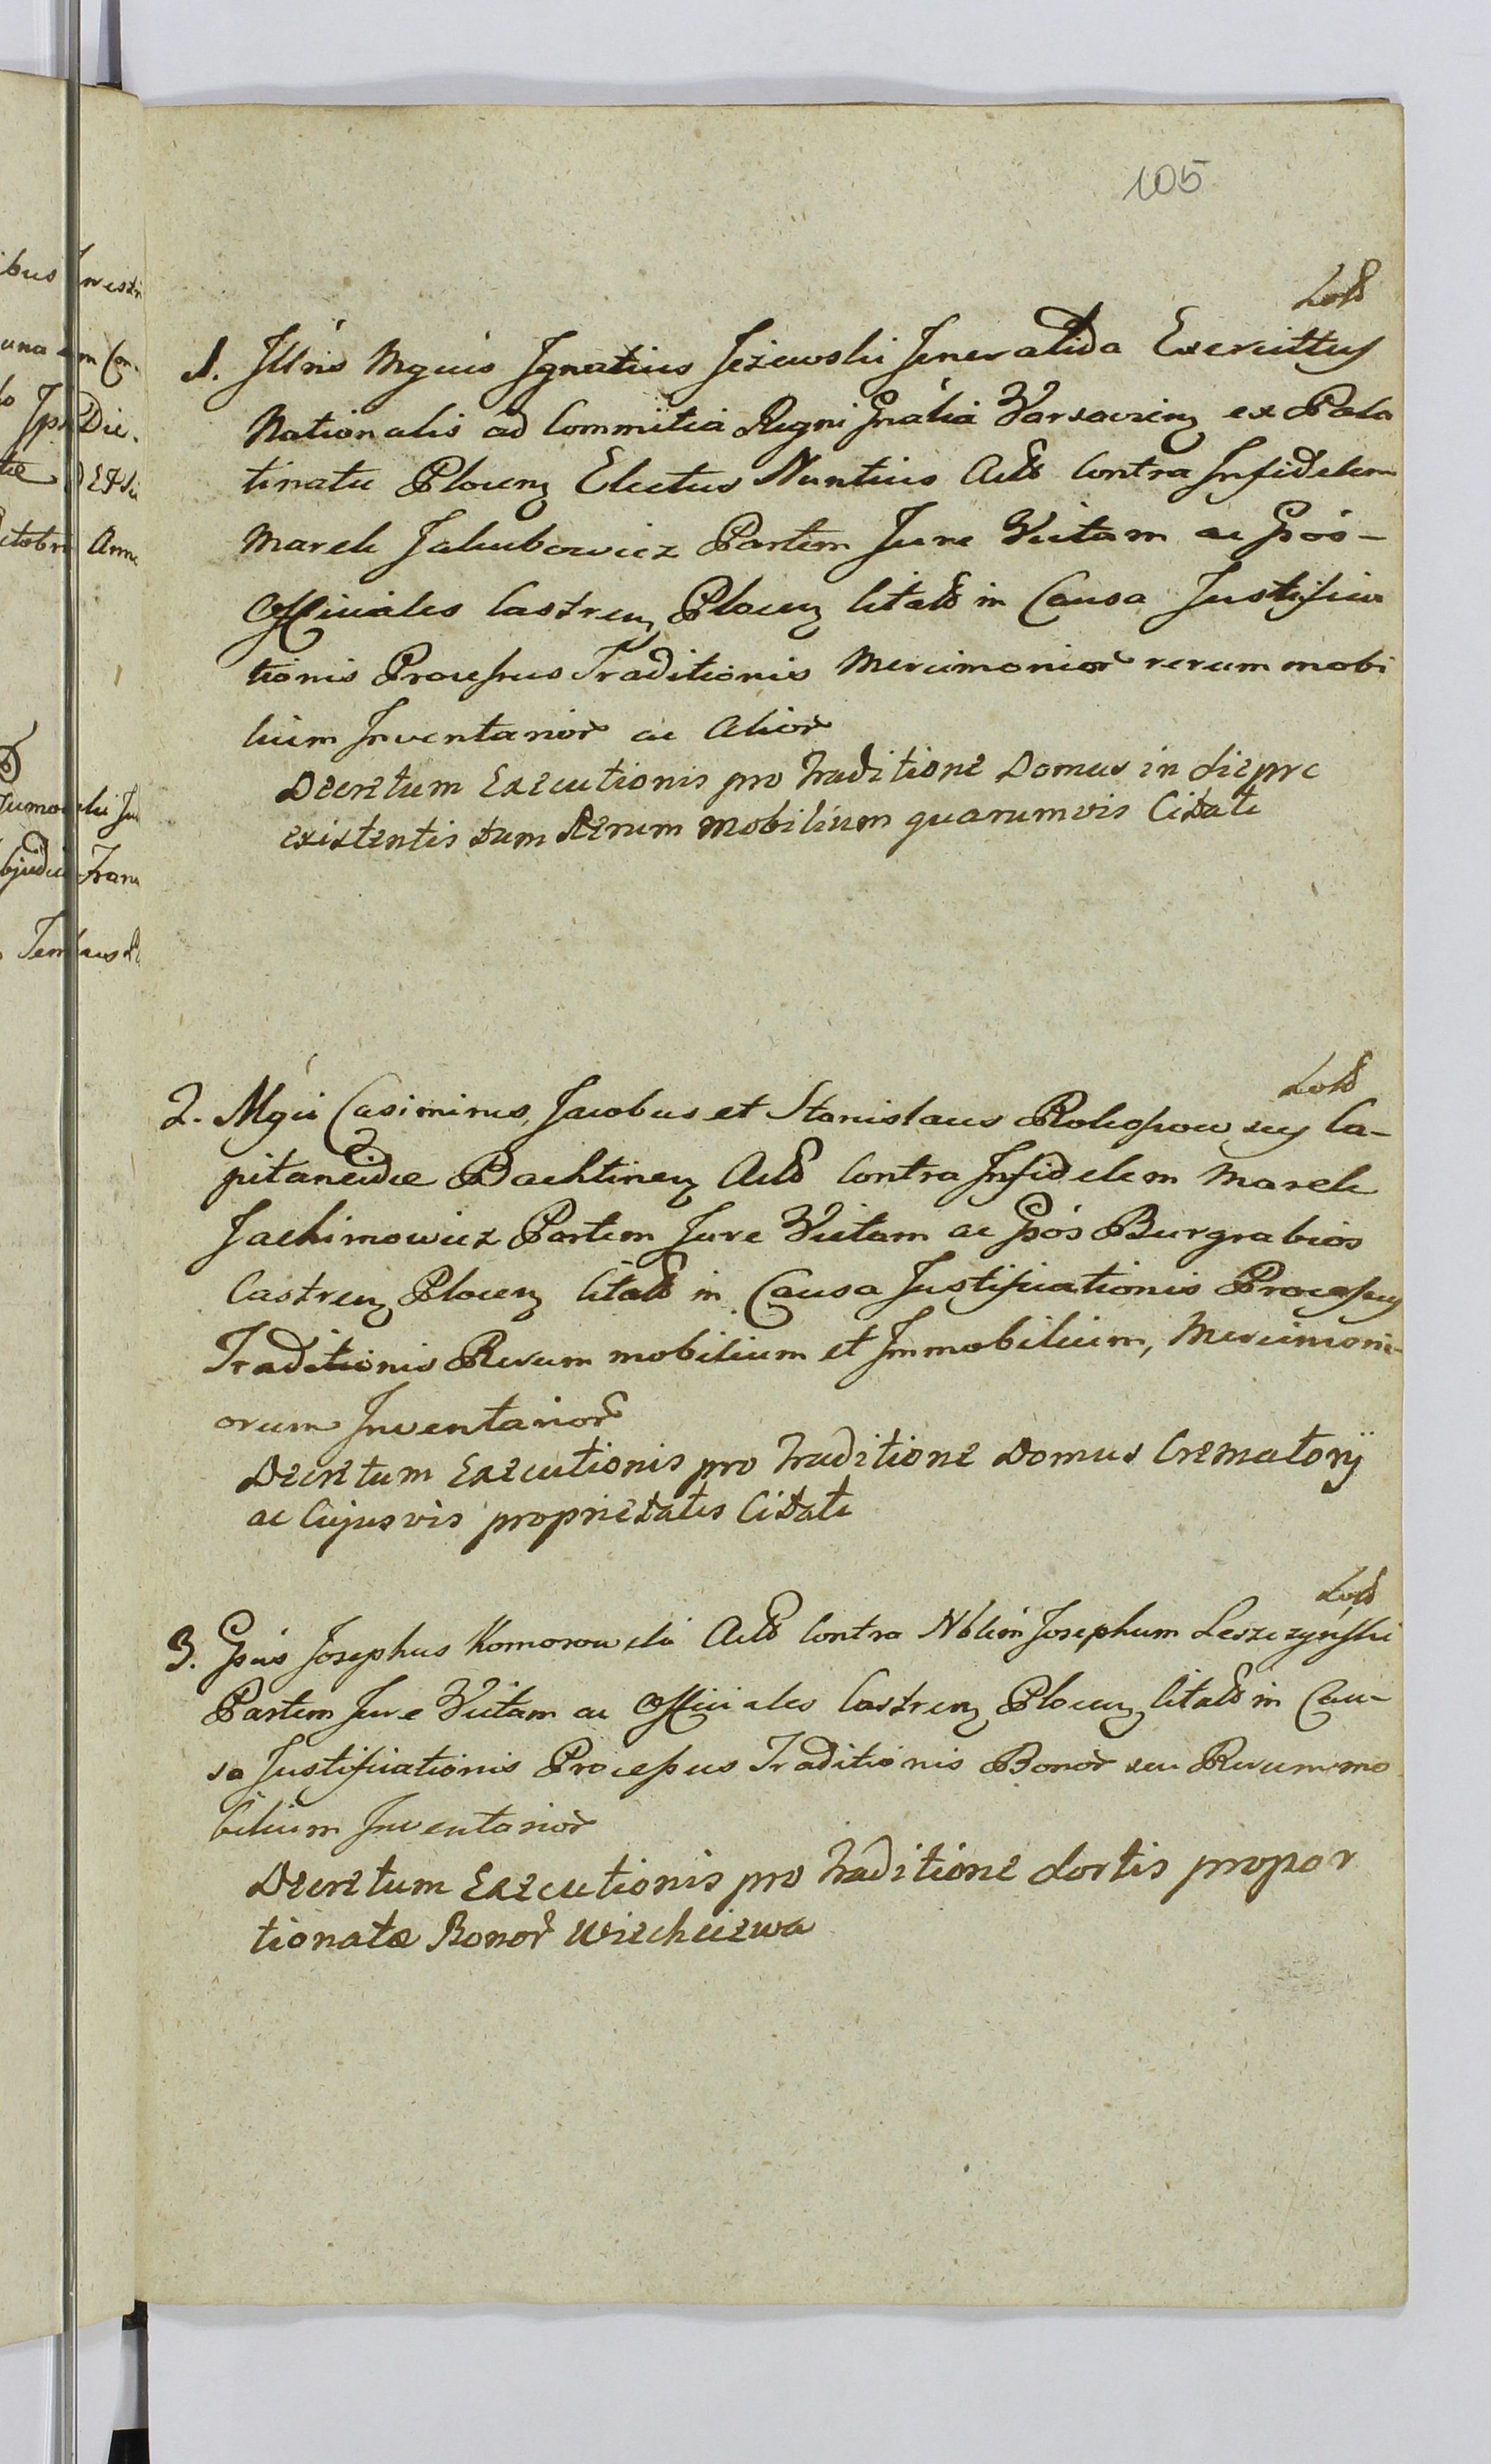 105
1. Illris Mgcus Ignatius Jeżewski Generalida Exercittus
Nationalis ad Commitia Regni Gnalia Varsaviens ex Pala
tinatu Plocens Electus Nuntius Actor Contra Infidelem
Marek Jakubowicz Partem Jure Victam ac Gsos -
Officiales Castrens Plocens Citatos in Causa Justifica
tionis Processus Traditionis Mercimonior rerum mobi
lium Inventarior ac Alior
Decretum Executionis pro Traditione Domus in
existentis tum Rerum mobilium quarumvis Citati
2. Mgci Casimirus, Jacobus et Stanislaus Ca-
pitaneidae Bachtinens Actores Contra Infidelem Marek
Jachimowicz Partem Jure Victam ac Gsos Burgrabios
Castrens Plocens Citatos in Causa Justificationis Processus
Traditionis Rerum mobilium et Immobilium, Mercimoni-
orum Inventarior
Decretum Executionis pro Traditione Domus Crematorij
ac Cujusvis proprietatis Citati
3. Gsus Josephus Komorowski Actor Contra Nblem Josephum Leszczyński
Partem Jure Victam ac Officiales Castrens Plocens Citatos in Cau-
sa Justificationis Processus Traditionis Bonor seu Rerum mo
bilium Inventarior
Decretum Executionis pro Traditione Sortis propor
tionatæ Bonor Wiechciewa